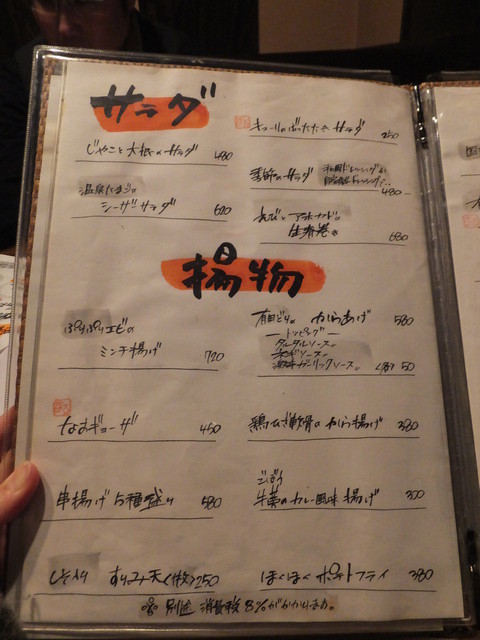 サラダ
じゃこと大根のサラダ 480
キューリのぶったたきサラダ 250
温泉たまごの
シーザーサラダ 680
季節のサラダ
480
えびとアボカドの
生春巻き 680
揚物
ぷりぷりエビの
ミンチ揚げ 720
有田どりの からあげ 580
トッピング
タルタルソース
ネギソース
ガーリックソース 50
なすギョーザ 450
鶏ひざ軟骨の から揚げ 380
串揚げ5種盛り 580
ごぼう
牛蒡のカレー風味揚げ 300
しそ入り すりみ天<1枚>250
ほくほく ポテトフライ 380
別途 消費税 8%がかかります。